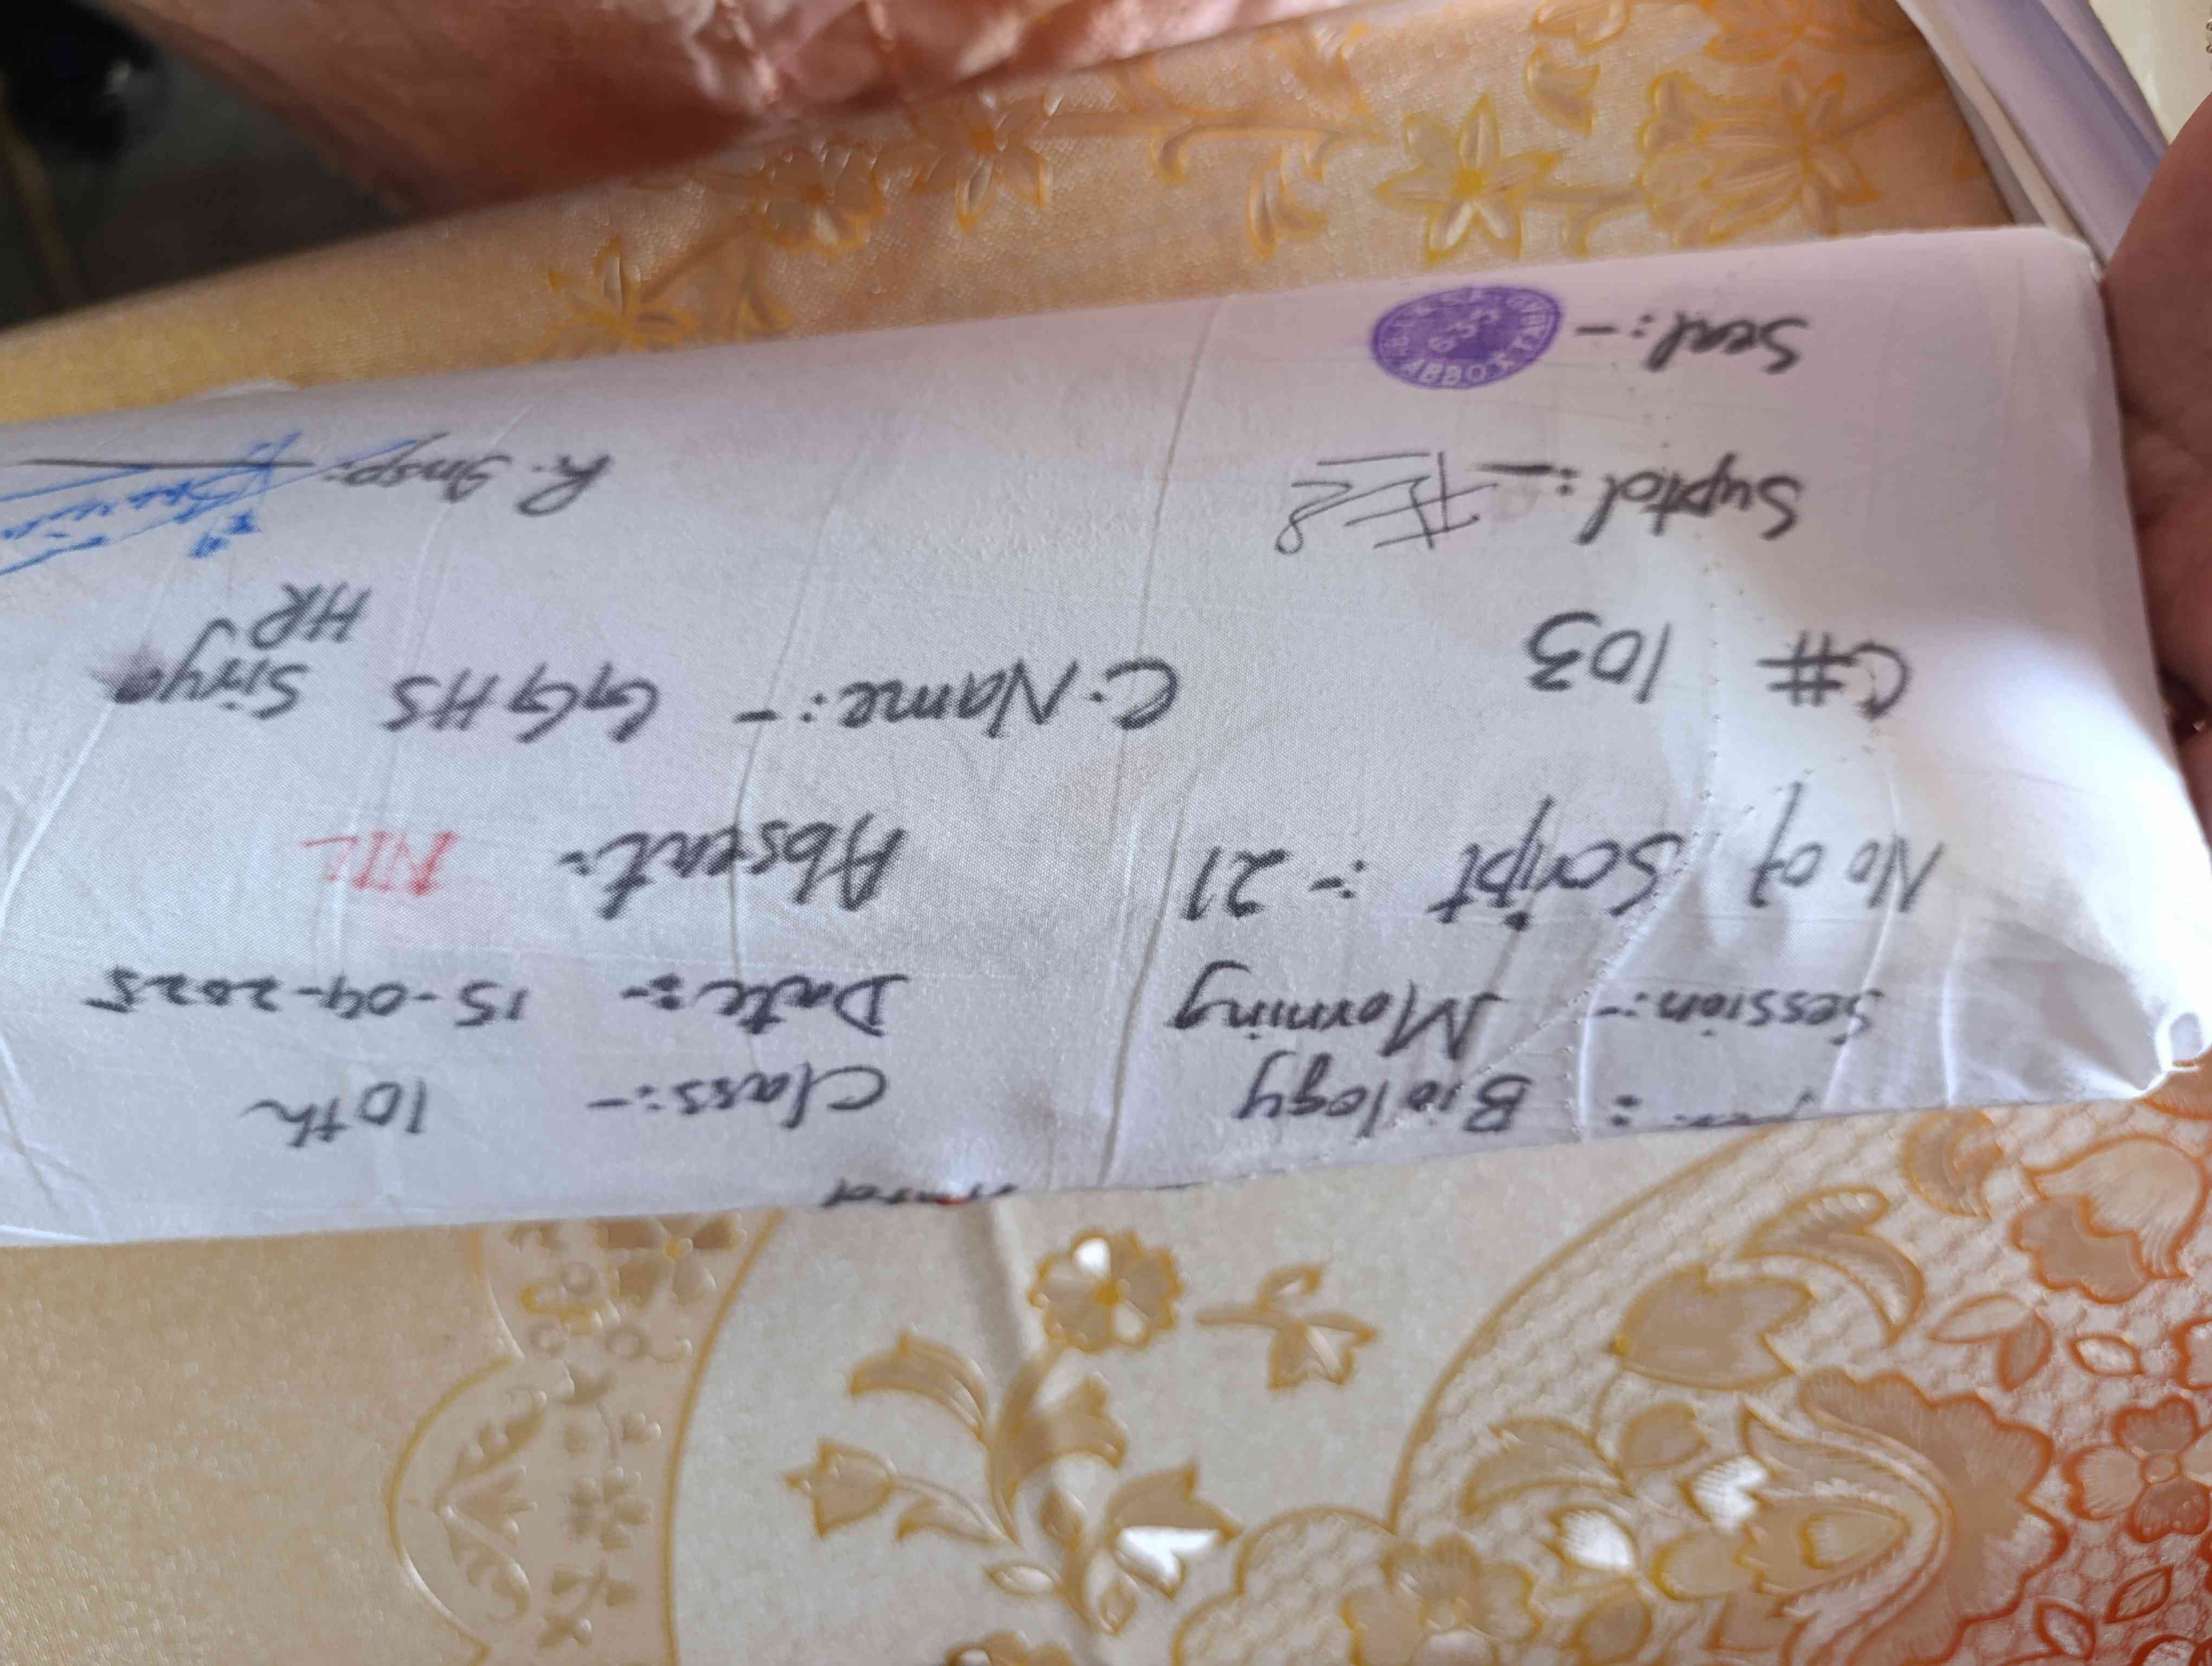 : Biology Class:- 10th
Session:- Morning Date:- 15-04-2025
No of Script :- 21 Absent:- NIL
C# 103 C.Name:- GGHS Sirya
HR
Suptd:- R. Insp:
Seal:- ABBOTTABAD